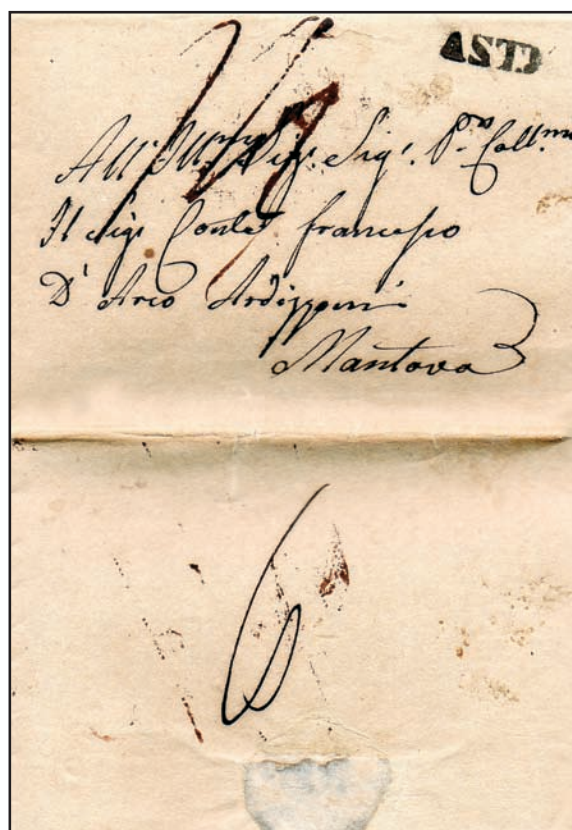 ASTI
All' Ill.mo Sig.r Sig.r P.ne Coll.mo
Il Sig.r Conte francesco
D'Arco Ardizzoni
Mantova
6